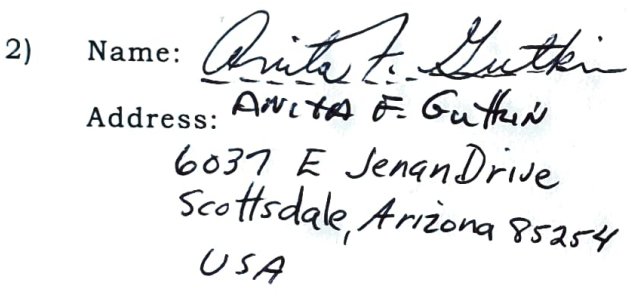 2) Name: Anita F. Gutkin
Address: ANITA F. GutKiN
6037 E Jenan Drive
Scottsdale, Arizona 85254
USA